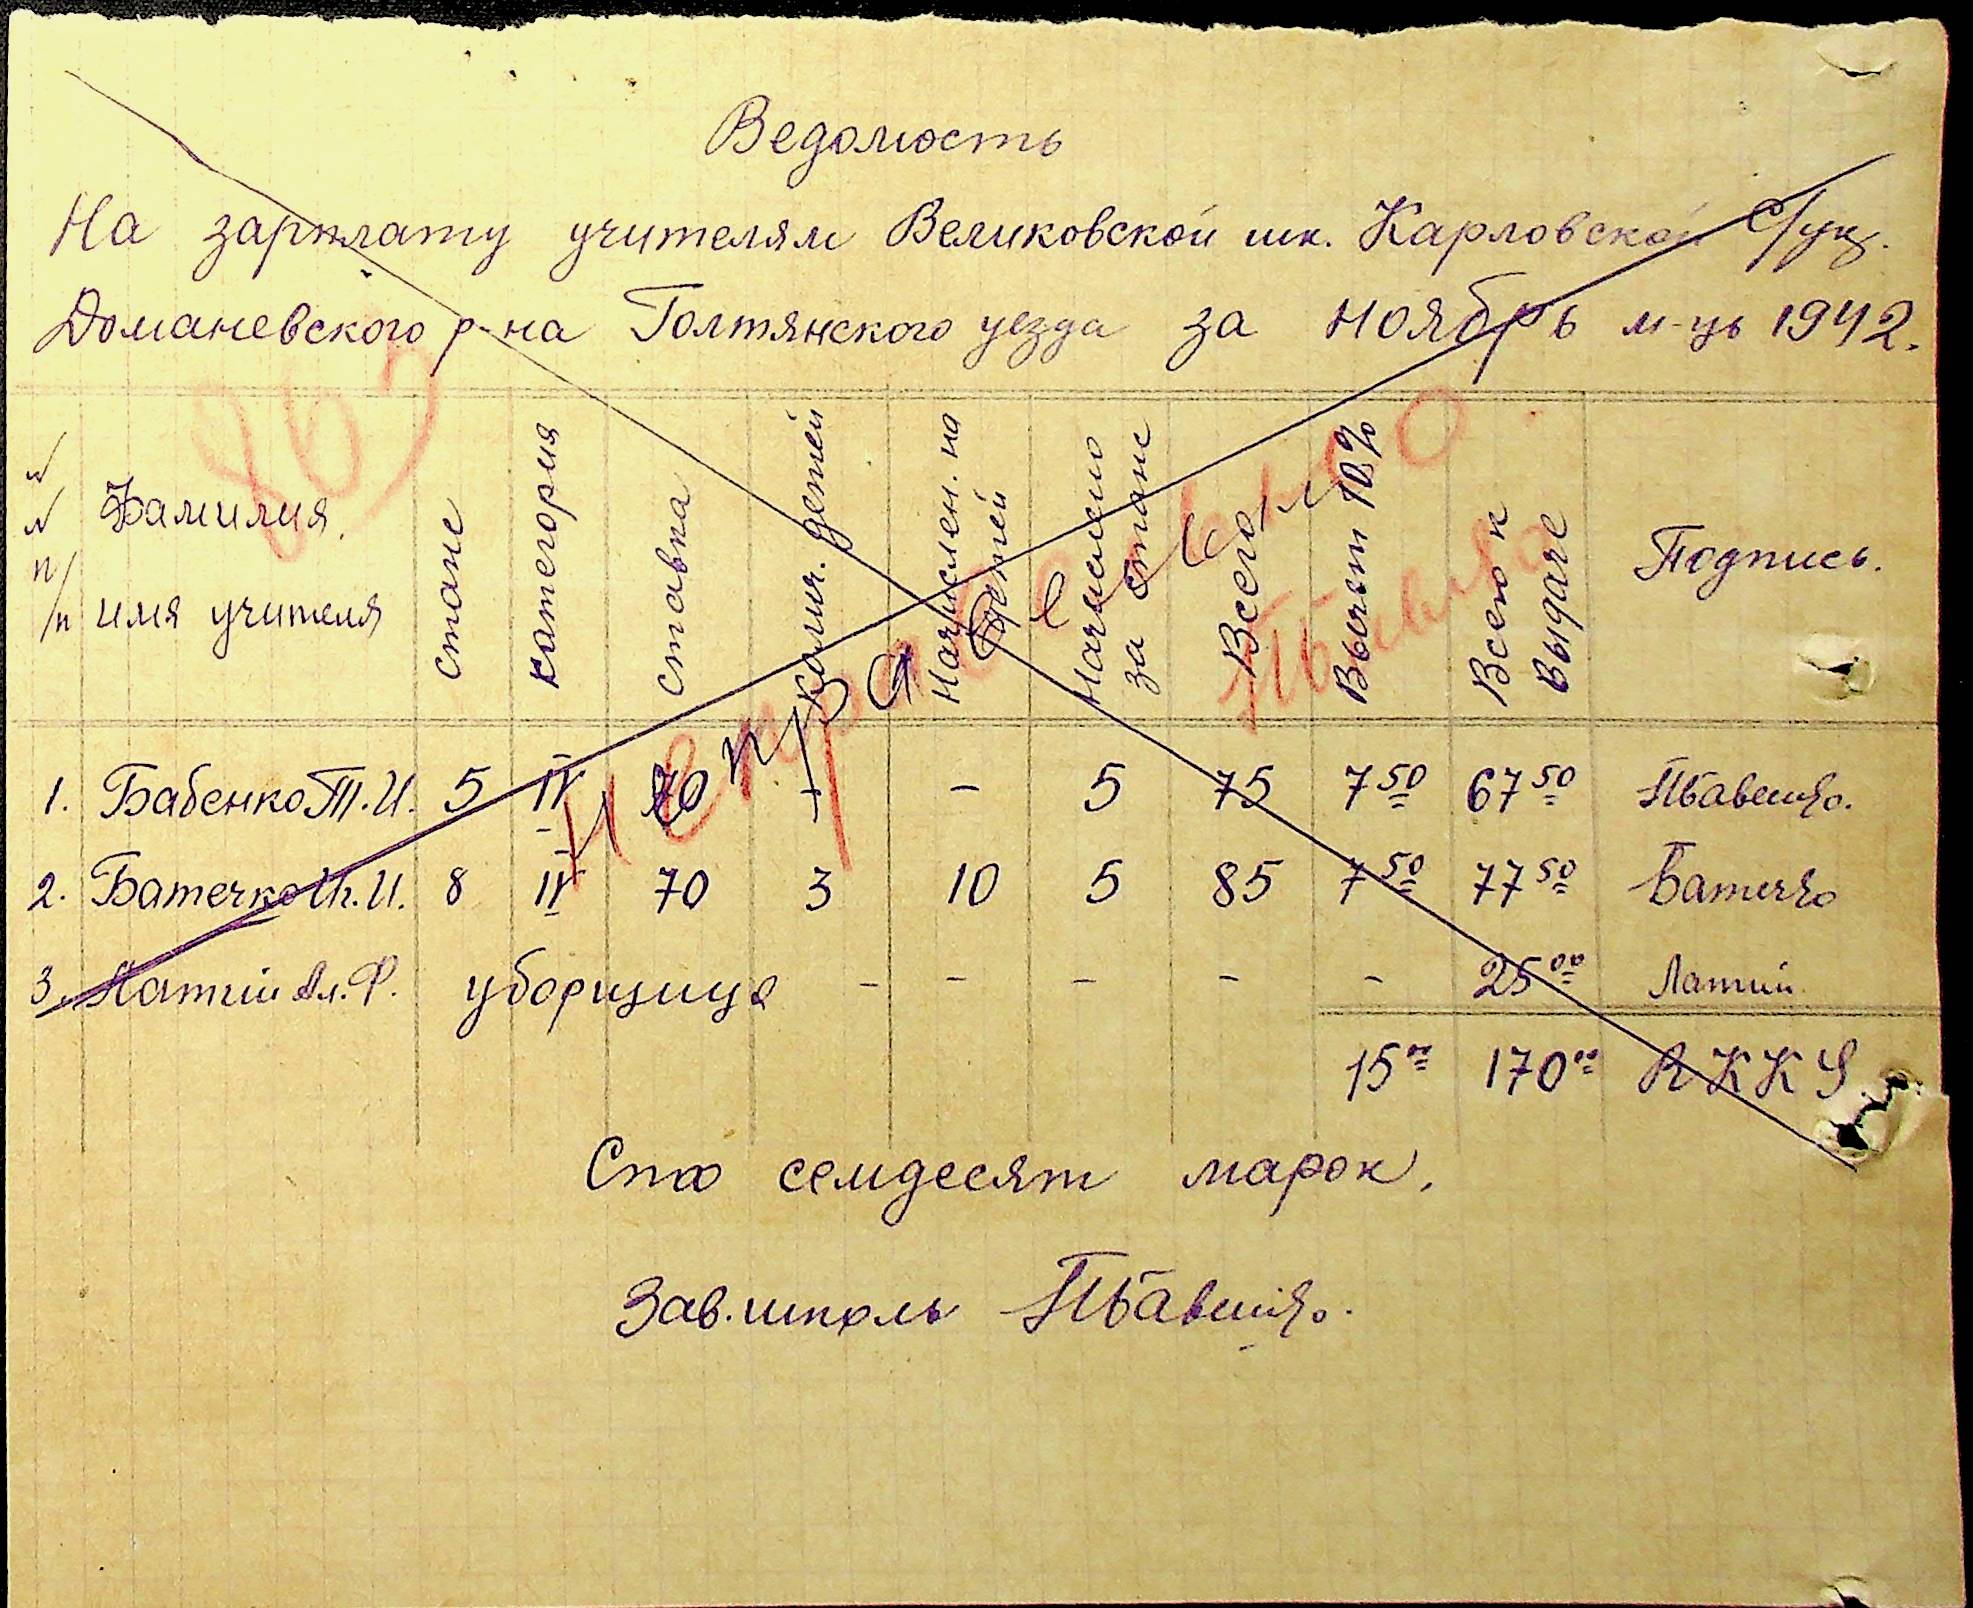 Ведомость
На зарплату учителям Великовской шк. Карловской
Доманевского р-на Голтянского уезда за ноябрь м-ць 1942.
№ № п/п Фамилия, имя учителя стаж категория ставка колич. детей Начислен. на детей Начислено за стаж Всего Вычет 10% Всего к выдаче Подпись.
1. Бабенко Т.И. 5 IV 70 - - 5 75 7 50 67 50
2. Батечко И. 8 IV 70 3 10 5 85 7 50 77 50 Батечко
3. Латий Ал. Ф. уборщица - - - - - 25 00 Латий
15 00 170 00 RKKS
неправельно
Сто семдесят марок.
Зав. школь